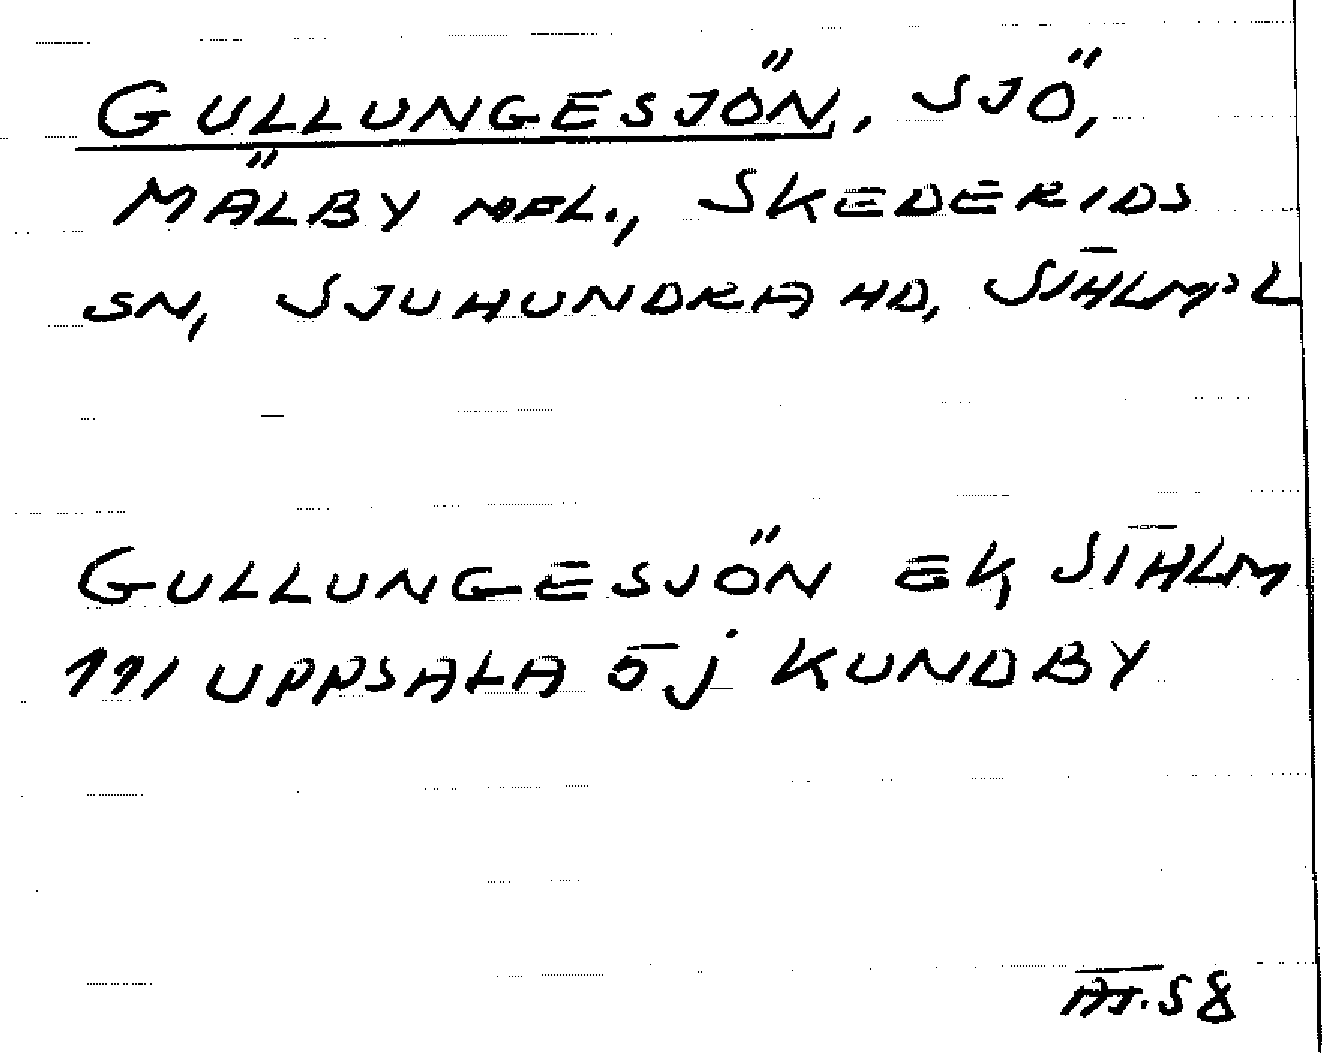 GULLUNGESJÖN, SJÖ,
MÄLBY MFL., SKEDERIDS
SN, SJUHUNDRA HD, STHLMS L
GULLUNGESJÖN EK, STHLM
111 UPPSALA 5j KUNDBY
58